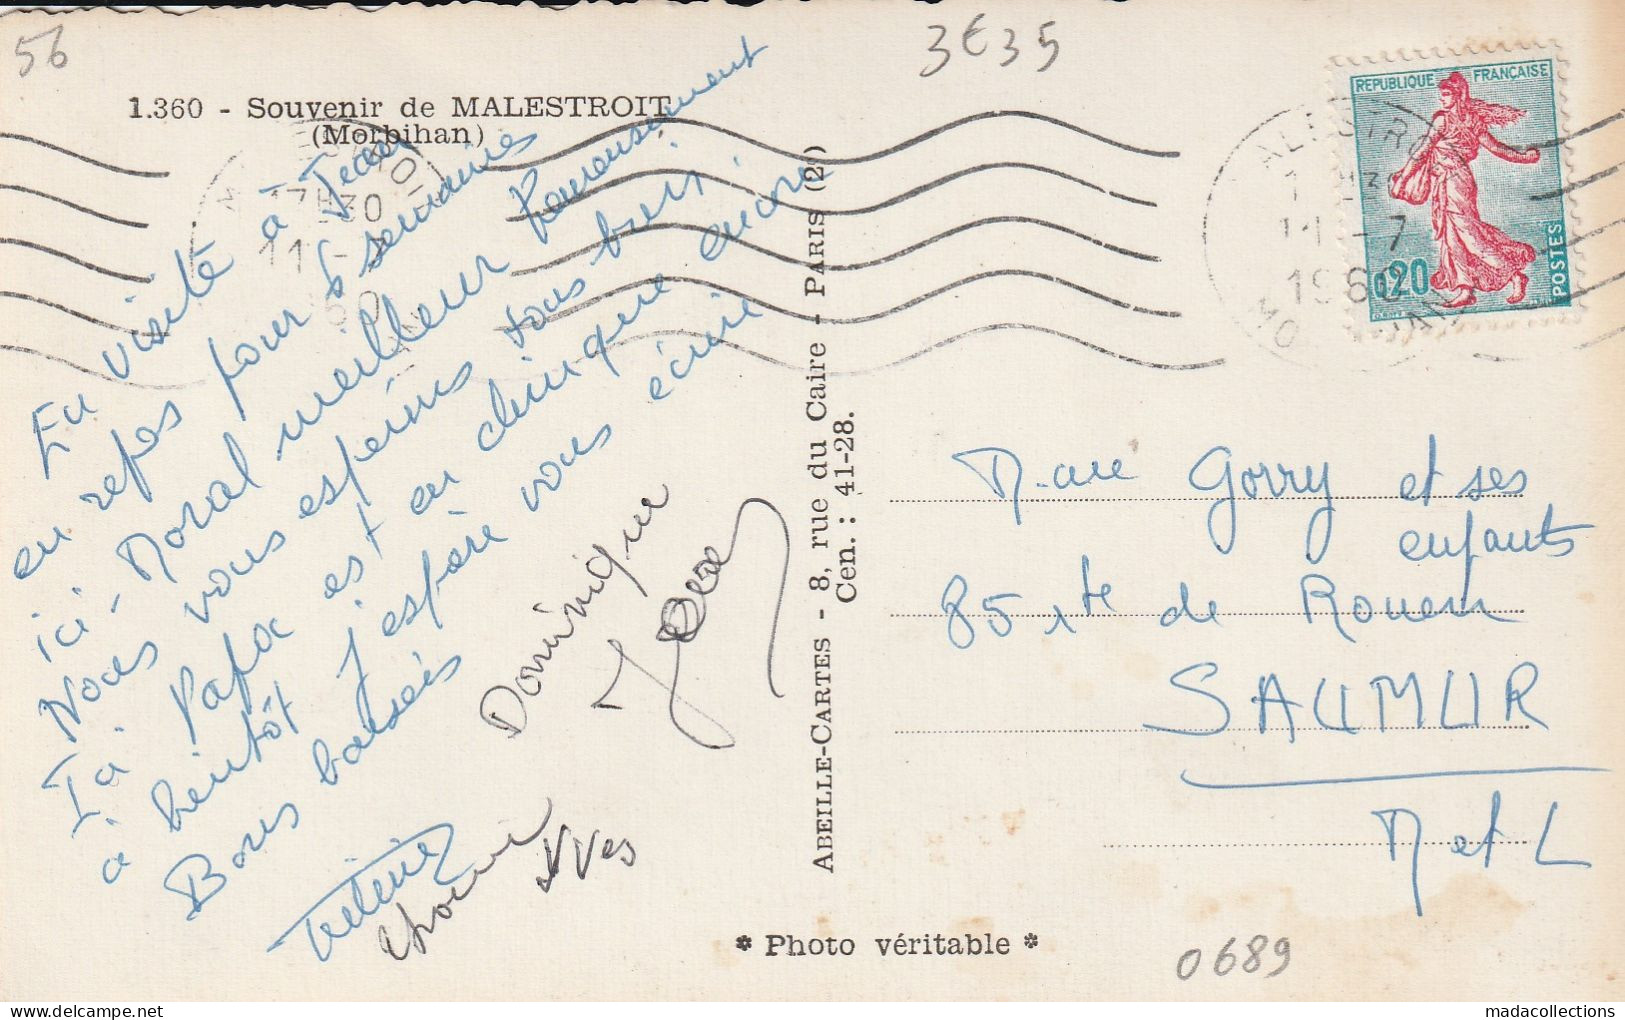 56
3€35
1.360 - Souvenir de MALESTROIT
(Morbihan)
REPUBLIQUE FRANÇAISE
0,20
POSTES
17H30
11 - 7
1960
En visite à Jean
en repos pour 6 semaines
ici - Moral meilleur heureusement
Nous vous espérons tous bien.
Ici Papa est en clinique encore
à bientôt j'espère vous écrire
Bons baisers
Dominique
Jean
Yves
ABEILLE-CARTES - 8, rue du Caire - PARIS (2e)
Cen. : 41-28.
Mme Gorry et ses
enfants
85 rte de Rouen
SAUMUR
M et L
* Photo véritable *
0689
madacollections